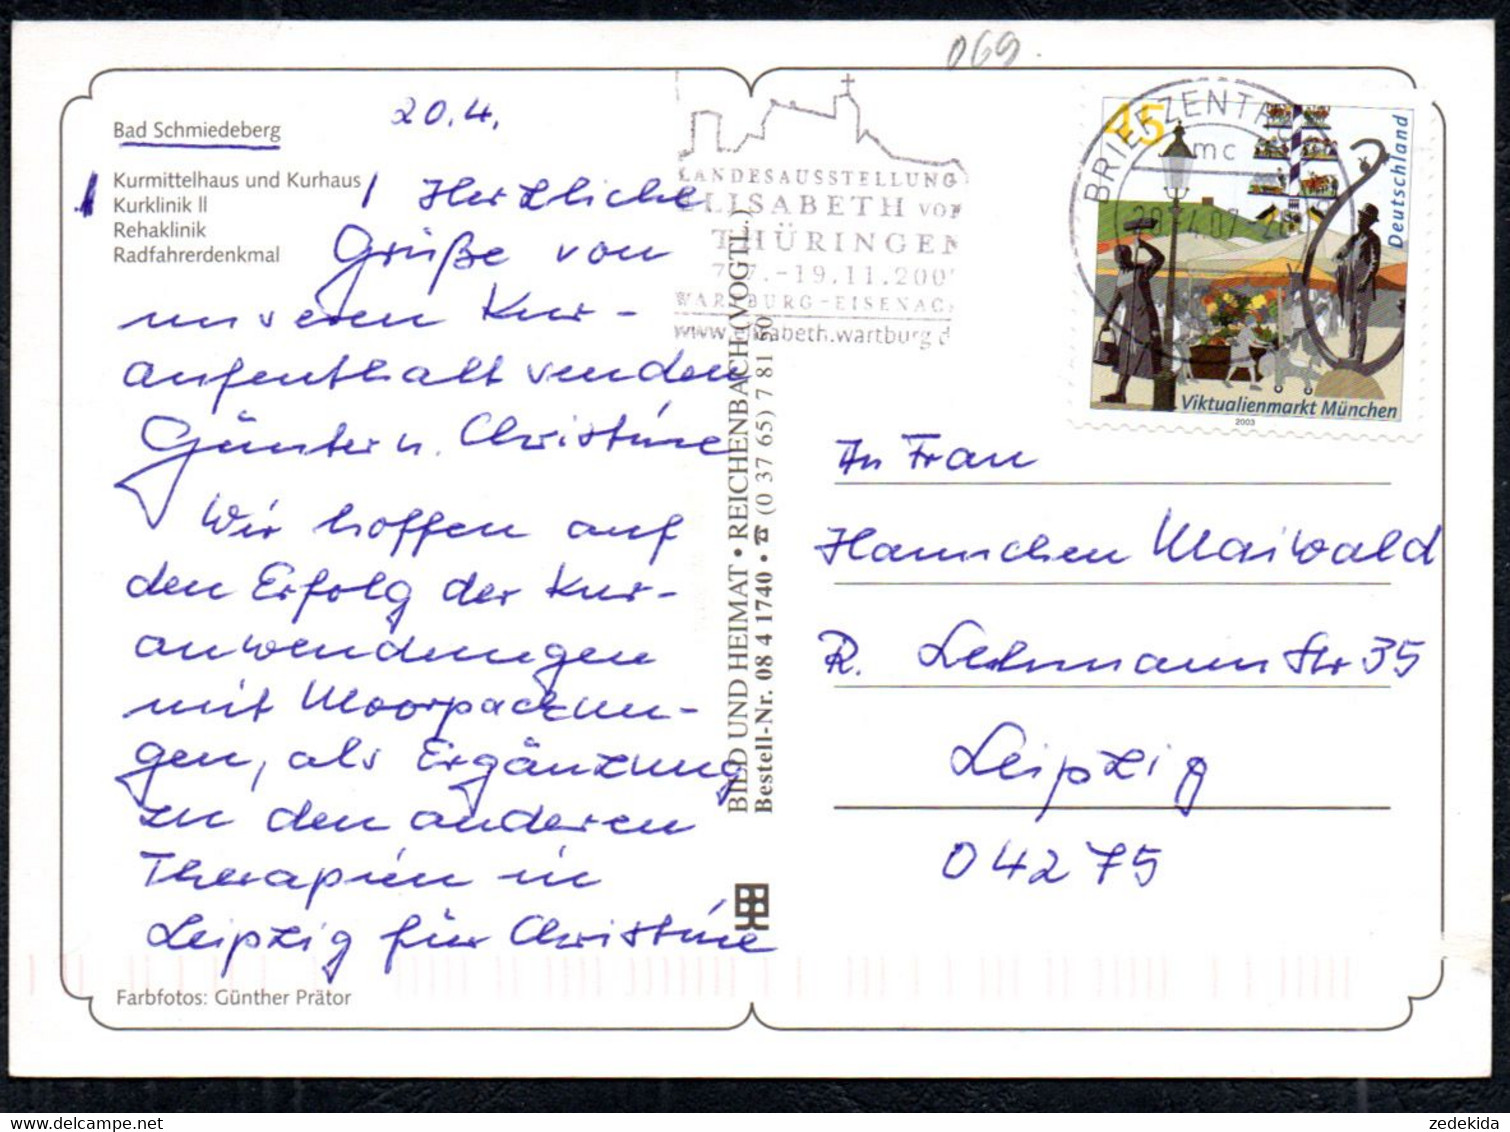 069.
20.4.
Bad Schmiedeberg
Kurmittelhaus und Kurhaus
Kurklinik II
Rehaklinik
Radfahrerdenkmal
Herzliche
Grüße von
unseren Kur-
aufenthalt senden
Günter u. Christine
Wir hoffen auf
den Erfolg der Kur-
anwendungen
mit Moorpackun-
gen, als Ergänzung
zu den anderen
Therapien in
Leipzig für Christine
Farbfotos: Günther Prätor
BILD UND HEIMAT • REICHENBACH (VOGTL.)
Bestell-Nr. 08 4 1740 • ☎ (0 37 65) 7 81 80
LANDESAUSSTELLUNG
ELISABETH VON
THÜRINGEN
7.7.-19.11.200
WARTBURG-EISENAC
www.elisabeth.wartburg.d
BRIEFZENTRUM
mc
45
Deutschland
Viktualienmarkt München
2003
An Frau
Hannchen Maiwald
R. Lehmann Str 35
Leipzig
04275
zedekida